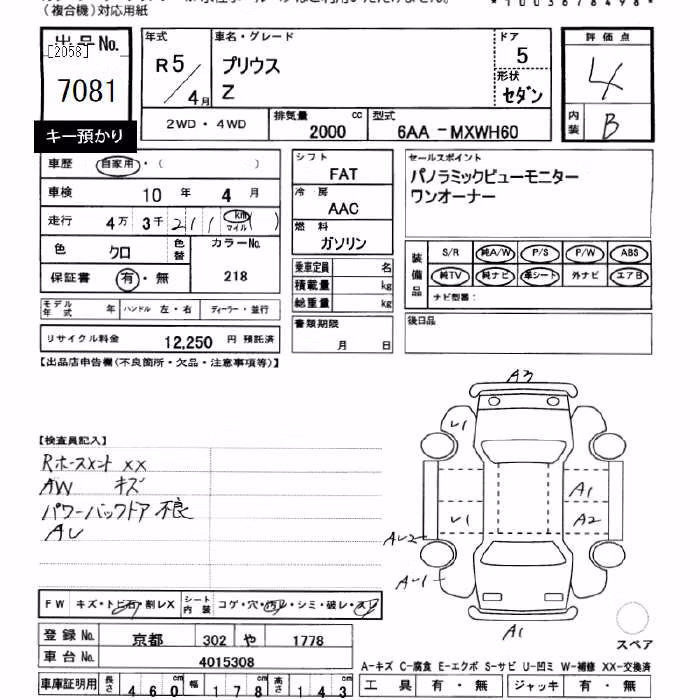 （複合機）対応用紙
出品No. [2058]
7081
キー預かり
年式 R5/4月
車名・グレード プリウス Z
ドア 5
形状 セダン
評価点 4
内装 B
2WD・4WD
排気量 2000 cc
型式 6AA-MXWH60
車歴 自家用・( )
車検 10年 4月
走行 4万3千211 km マイル ( )
色 クロ 色替 カラーNo. 218
保証書 有・無
シフト FAT
冷房 AAC
燃料 ガソリン
乗車定員 名
積載量 kg
総重量 kg
セールスポイント
パノラミックビューモニター
ワンオーナー
装備品
S/R 純A/W P/S P/W ABS
純TV 純ナビ 革シート 外ナビ エアB
ナビ型番：
モデル年式 年 ハンドル 左・右 ディーラー・並行
リサイクル料金 12,250 円 預託済
書類期限 月 日
後日品
【出品店申告欄(不良箇所・欠品・注意事項等)】
【検査員記入】
Rホースメント XX
AW キズ
パワーバックドア 不良
AU
A3
U1
A1
U1
A2
AU2
AU1
A1
スペア
FW キズ・トビ石・割レX シート内装 コゲ・穴・汚レ・シミ・破レ・スレ
登録No. 京都 302 や 1778
車台No. 4015308
車庫証明用 長さ 460cm 幅 178cm 高さ 143cm
A-キズ C-腐食 E-エクボ S-サビ U-凹ミ W-補修 XX-交換済
工具 有・無 ジャッキ 有・無